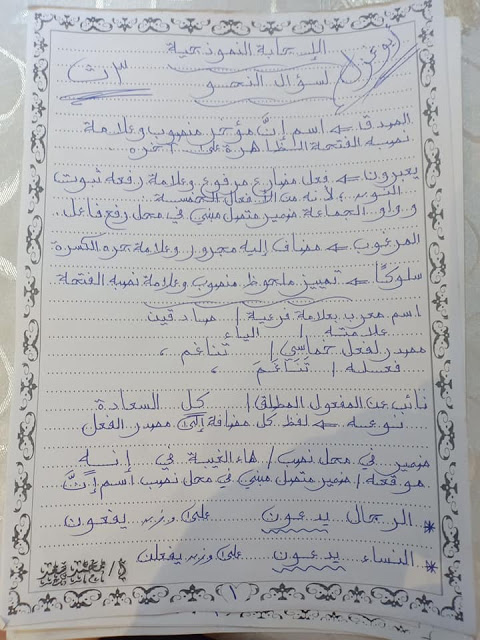 الإجابة النموذجية
لسؤال النحو
٣ ث
الصدق ← اسم إنَّ مؤخر منصوب وعلامة
نصبه الفتحة الظاهرة على آخره
يعبرون ← فعل مضارع مرفوع وعلامة رفعه ثبوت
النون ؛ لأنه من الأفعال الخمسة
و واو الجماعة ضمير متصل مبني في محل رفع فاعل
المرغوب ← مضاف إليه مجرور وعلامة جره الكسرة
سلوكًا ← تمييز ملحوظ منصوب وعلامة نصبه الفتحة
اسم معرب بعلامة فرعية / صادقين
علامته / الياء
مصدر لفعل خماسي / تناغم ،
فعله / تَنَاغَمَ ،
نائب عن المفعول المطلق / كل السعادة
نوعه ← لفظ كل مضافة إلى مصدر الفعل
ضمير في محل نصب / هاء الغيبة في إنه
موقعه / ضمير متصل مبني في محل نصب اسم إنَّ
* الرجال يدعون على وزن يفعون
* النساء يدعون على وزن يفعلن
١